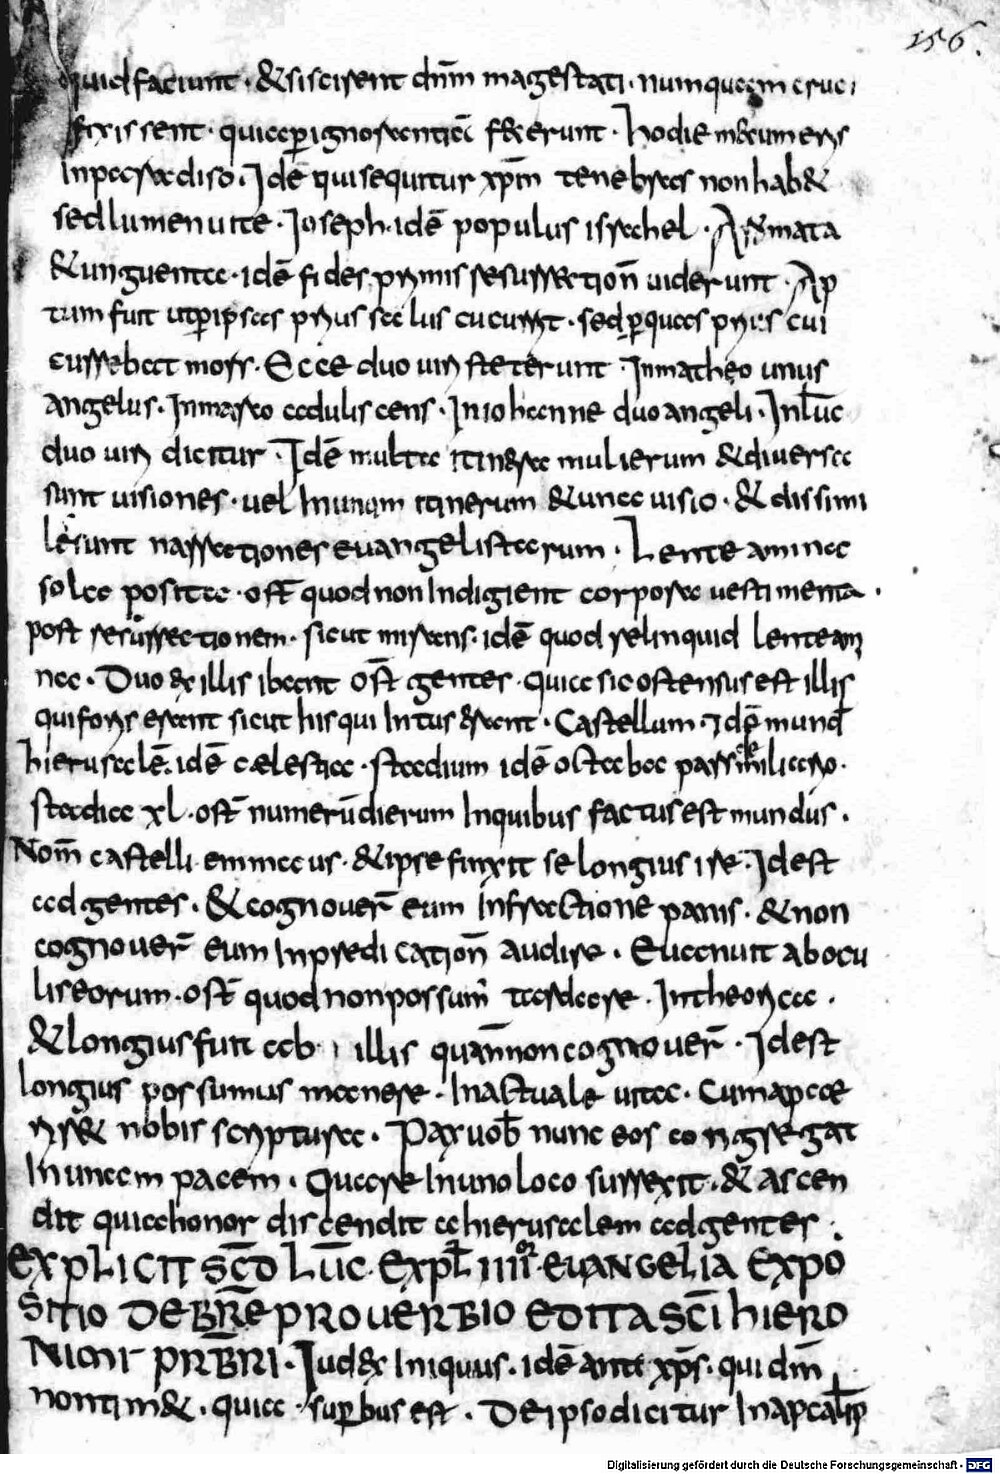 156.
quid faciunt · & si scirent dn̄m magestati · numquam cruci
fixissent · quia ꝑ ignorantiā fecerunt · hodie mecum eris
In paradiso · Idē qui sequitur xp̄m tenebras non hab&
sed lumen uite · Ioseph · idē populus israhel · Aromata
& unguenta · idē fides · primis resurrection̄ uiderunt · Ap
tum fuit ut ꝑ ipsas prius salus cucurrit · sed ꝑ quas prius cui
currebat mors · Ecce duo uiri steterunt · In matheo unus
angelus · In marco aduliscens · In iohanne duo angeli · In luc̄
duo uiri dicitur · Idē multa itinera mulierum & diuersa
sunt uisiones · uel In unam itinerum & una uisio · & dissimi
le sunt narrationes euangelistarum · Lenteamina
sola posita · ost̄ quod non Indigient corpora uestimenta ·
post resurrectionem · sicut misrens · idē quod relinquid lenteam
na · Duo ex illis ibant ost̄ gentes · quia sic ostensus est illis
qui foris erant sicut his qui Intus erant · Castellum · idē mund̄
hierusalē · idē cælestia · stadium idē octaba pars miliario ·
stadia xl · ost̄ numerū dierum In quibus factus est mundus ·
Nom̄ castelli emmaus · & ipse finxit se longius ire · Idest
ad gentes · & cognouer̄ eum In fractione panis · & non
cognouer̄ eum In predication̄ audire · Euanuit ab ocu
lis eorum · ost̄ quod non possum̄ tardare · In theorica ·
& longius fuit ab illis quā non cognouer̄ · Idest
longius possumus manere · In actuale uita · cum apæ
rir& nobis scriptura · Pax uob̄ nunc eos congregat
In unam pacem · Quare In uno loco surrexit · & ascen
dit quia honor discendit a hierusalem ad gentes ·
Explicit sc̄d Luc̄ · Expl̄ IIII · Euangelia expo
sitio de bre proverbio edita sc̄i hiero
nimi prb̄ri · Iudex Iniquus · idē anti xp̄s · qui dm̄
non tim& · quia superbus est · De ipso dicitur In apcalip̄
Digitalisierung gefördert durch die Deutsche Forschungsgemeinschaft · DFG